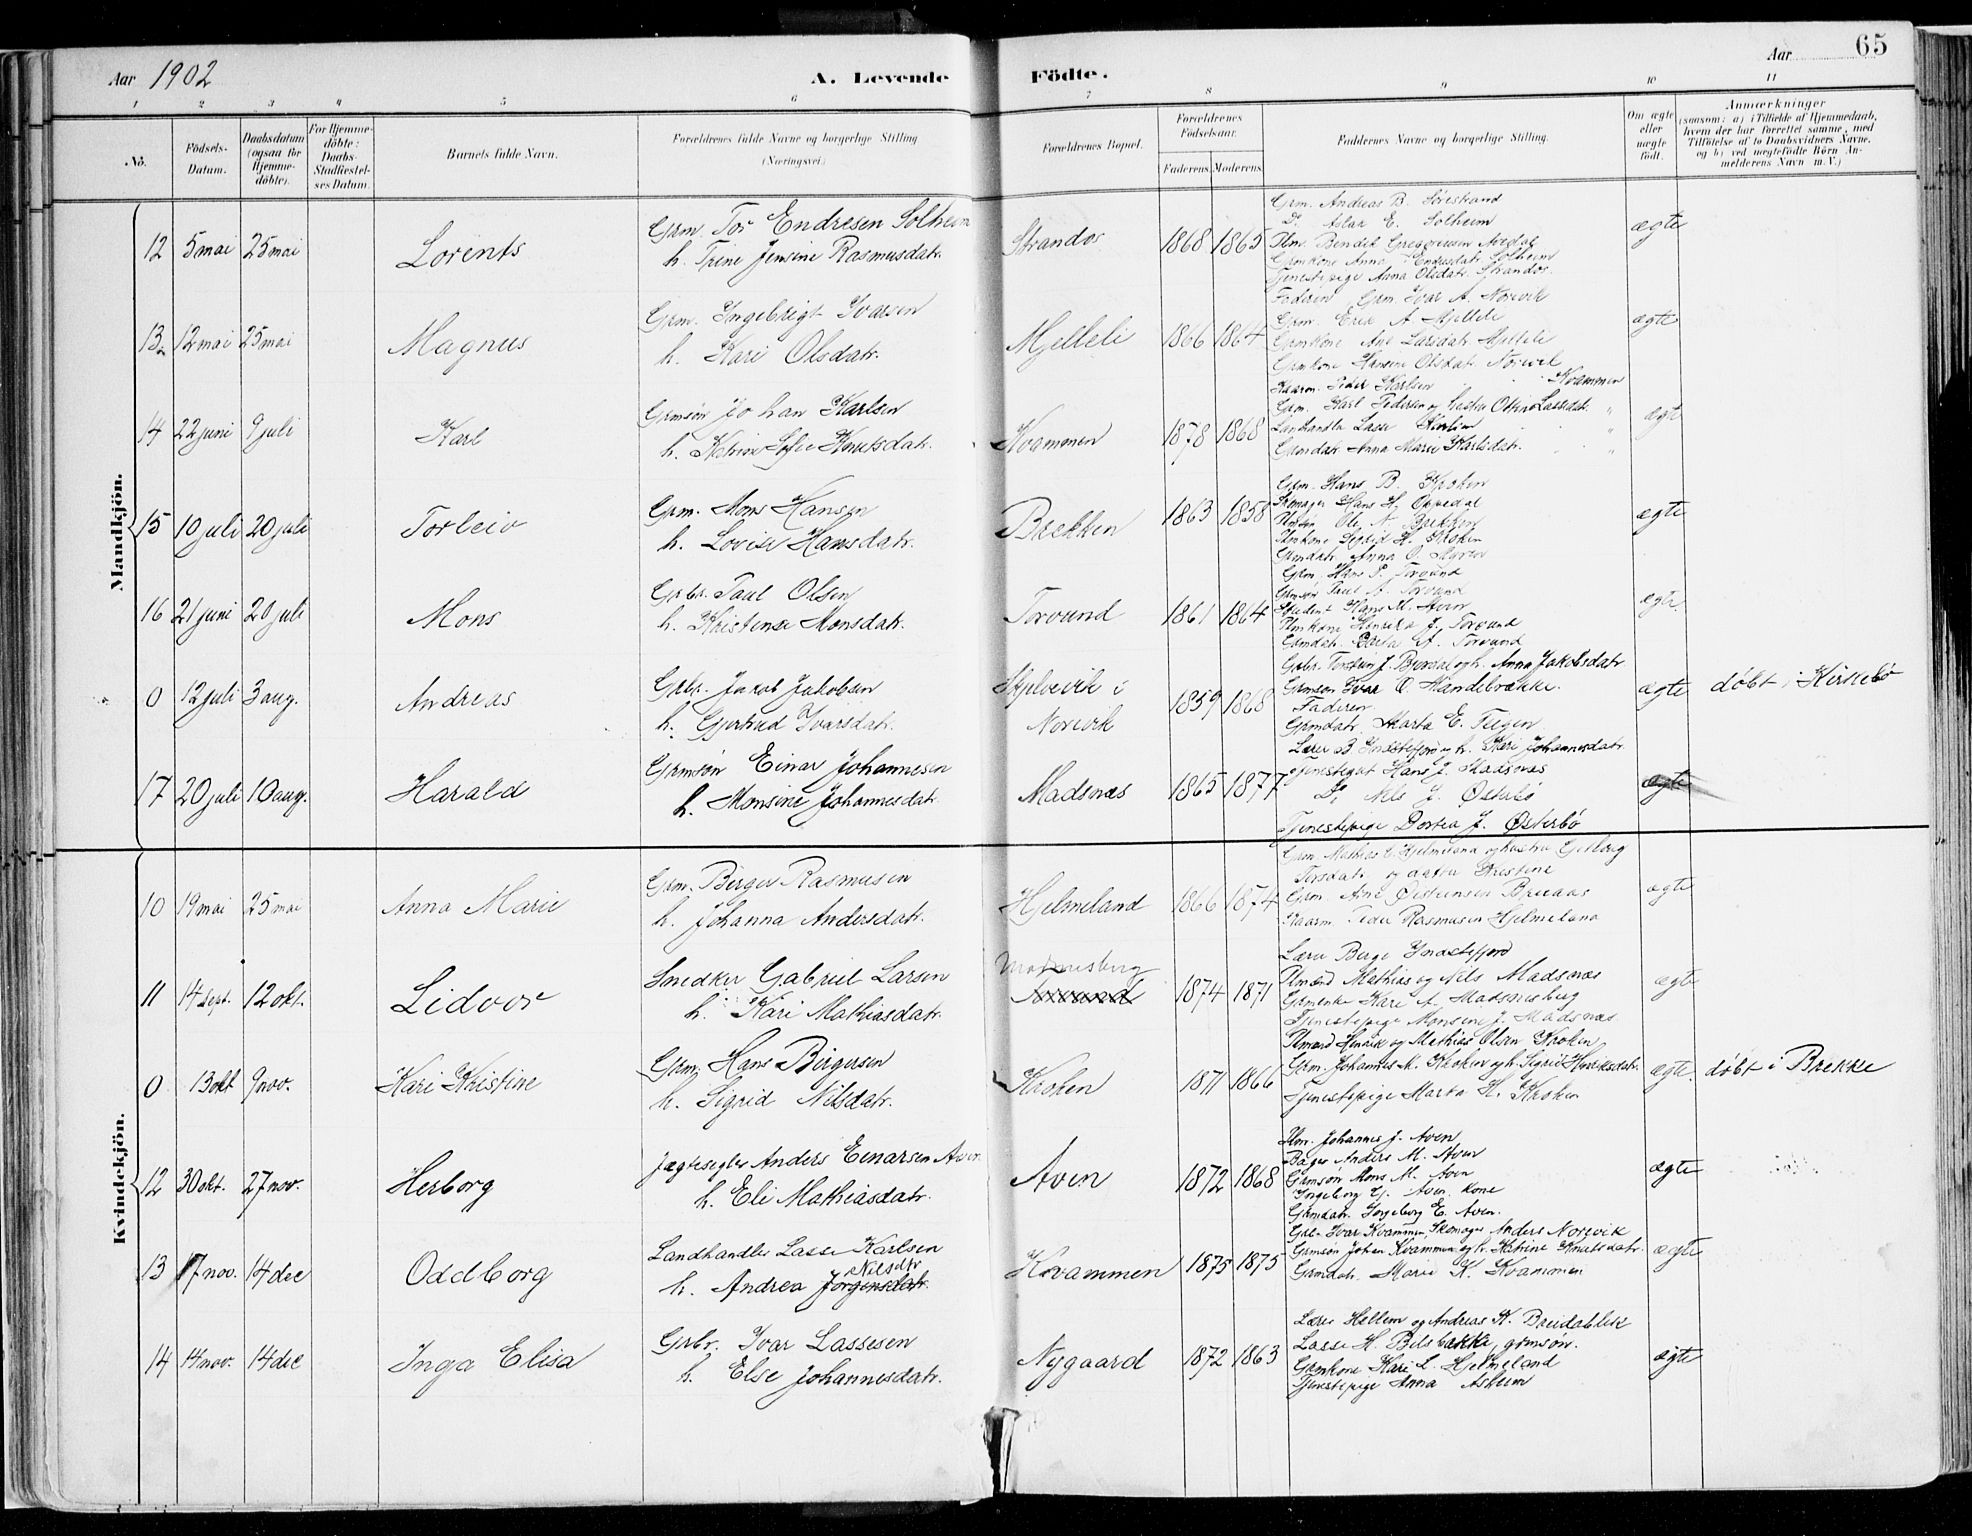 Aar 1902
A. Levende Födte.
Aar 65
1 2 3 4 5 6 7 8 9 10 11
No.
Födsels-Datum.
Daabsdatum (ogsaa for Hjemme-döbte).
For Hjemme-döbte: Daabs-Stadfæstel-ses Datum.
Barnets fulde Navn.
Forældrenes fulde Navne og borgerlige Stilling (Næringsvei.)
Forældrenes Bopæl.
Forældrenes Födselsaar.
Faderens. Moderens.
Faddernes Navne og borgerlige Stilling.
Om ægte eller uægte födt.
Anmærkninger (saasom: a) i Tilfælde af Hjemmedaab, hvem der har forrettet samme, med Tilföielse af to Daabsvidners Navne, og b) ved uægtefödte Börn An-melderens Navn m. V.)
Mandkjön.
12 5 mai 25 mai Lorents
Grm. Tor Endresen Solheim
h. Trine Jensine Rasmusdatr.
Strandos 1868 1865
Grm. Andreas B. Sørestrand
Do. Aslak E. Solheim
Bendik Gregoriusen
Grmkone Anna Endresdatr. Solheim
Tjenestepige Anna Olsdatr. Strandos
ægte
13 12 mai 25 mai Magnus
Grm. Ingebrigt Ivarsen
h. Kari Olsdatr.
Mjelleli 1866 1864
Faderen Grm. Ivar A. Norevik
Grm. Erik A Mjelleli
Grmkone Ane Larsdatr. Mjelleli
Grmkone Hansine Olsdatr. Norevik
ægte
14 22 juni 9 juli Karl
Grmsøn Johan Karlsen
h. Katrine Sofie Knutsdatr.
Kvammen 1878 1868
Peder Karlsen Kvammen
Grm. Karl Pedersen og hustru Oline Lassedatr. "
Landhandler Lasse Karlsen "
Grmdatr. Anna Marie Karlsdatr. "
ægte
15 10 juli 20 juli Torleiv
Grm. Mons Hansen
h. Lovise Hansdatr.
Brekken 1863 1858
Grm. Hans B. Kroken
Skomager Hans H. Oppedal
Ole A. Brekken
Sigrid H. Kroken
Grmdatr. Anna O.
ægte
16 21 juni 20 juli Mons
Grbr. Paul Olsen
h. Kristense Monsdatr.
Torvund 1861 1864
Grm. Hans P. Torvund
Grmsøn Paul A. Torvund
Student Hans M. Aven
Henrikka J. Torvund
Grmdatr. Brita A. Torvund
ægte
0 12 juli 3 aug. Andreas
Grbr. Jakob Jakobsen
h. Gjertrud Ivarsdatr.
Skjelvevik i
Norevik
1859 1868
Grbr. Torstein J. Bjordal og h. Anna Jakobsdatr.
Grmsøn Ivar O. Handebrække.
Faderen
Grmdatr. Marta E.
ægte døbt i Kirkebø
17 20 juli 10 aug. Harald
Grmsøn Einar Johannesen
h. Monsine Johannesdatr.
Madsnæs 1865 1877
Lærer B Yndestefjord og h. Kari Johannesdatr.
Tjenestegut Hans J. Madsnæs
Do. Nils J. Østerbø
Tjenestepige Dortea J. Østerbø
ægte
Kvindekjön.
10 19 mai 25 mai Anna Marie
Grm. Birger Rasmusen
h. Johanna Andersdatr.
Hjelmeland 1866 1874
Grm. Mathias E. Hjelmeland og hustru
Torsdatr. og datter Kristine
Grm. Arne Øisteinsen
Peder Rasmusen Hjelmeland
ægte
11 14 sept. 12 okt. Lidvor
Snedker Gabriel Larsen
h. Kari Mathiasdatr.
Madsnesberg
1874 1871
Lærer Berge Yndestefjord
Mathias og Nils Madsnæs
Grmenke Kari A. Madsnesberg
Tjenestepige Monsine J. Madsnæs
ægte
0 13 okt 9 nov. Kari Kristine
Grm. Hans Birgersen
h. Sigrid Nilsdatr.
Kroken 1871 1866
Henrik og Mathias Olsen Kroken
Grm. Johannes M. Kroken og h. Sigrid Henriksdatr.
Tjenestepige Marta H. Kroken
ægte. døbt i Brekke
12 30 okt. 27 nov. Herborg
Jægtesegler Anders Einarsen Aven
h. Eli Mathiasdatr.
Aven 1872 1868
Johannes J. Aven
Bager Anders M. Aven
Grmsøn Mons M. Aven
Ingeborg G. Aven kone
Grmdatr. Ingeborg E. Aven.
ægte
13 17 nov. 14 dec Oddborg
Landhandler Lasse Karlsen
h. Andrea Jørgensdatr. Nilsdtr
Kvammen 1875 1875
Grbr. Ivar Kvammen, Skomager Anders Norevik
Grmsøn Johan Kvammen og h. Katrine Knutsdatr.
Grmdatr. Marie K. Kvammen
ægte
14 14 nov. 14 dec Inga Elisa
Grbr. Ivar Lassesen
h. Else Johannesdatr.
Nygaard 1872 1863
Lærer Hellem og Andreas K. Breidablik
Lasse H. Bilsbakke, grmsøn.
Grmkone Kari L. Hjelmeland
Tjenestepige Anna Asheim
ægte